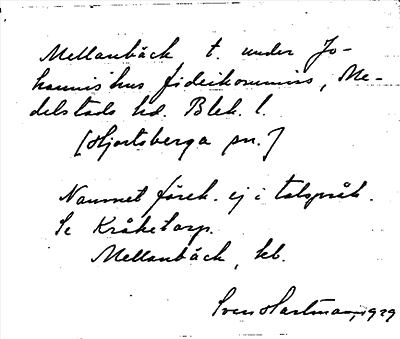 Mellanbäck t. under Jo-
hannishus fideikommiss, Me-
delstads hd. Blek. l.
[Hjortsberga sn.]
Namnet förek. ej i talspråk.
Se Kråketorp.
Mellanbäck, kb.
Sven Hartman, 1929